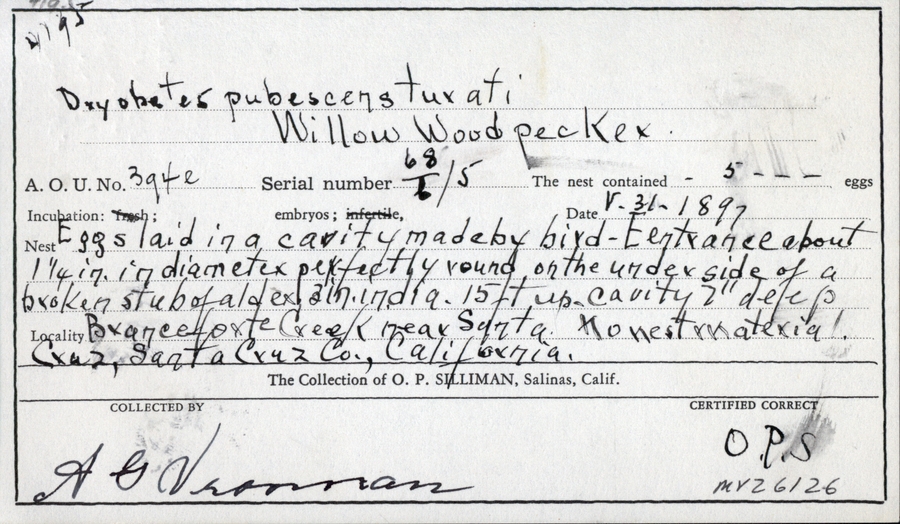 4195
Dryobates pubescens turati
Willow Woodpecker.
A. O. U. No. 394e Serial number 68/6/5 The nest contained - 5 - - - eggs
Incubation: fresh; embryos; infertile, Date V-31-1897
Nest Eggs laid in a cavity made by bird - Eentrance about
1¼ in. in diameter perfectly round, on the under side of a
broken stub of alder, 3 in. in dia. 15 ft up. cavity 7" deep
Locality Branceforte Creek near Santa. No nest material.
Cruz, Santa Cruz Co., California.
The Collection of O. P. SILLIMAN, Salinas, Calif.
COLLECTED BY CERTIFIED CORRECT
A G Vrooman O.P.S
MVZ6126